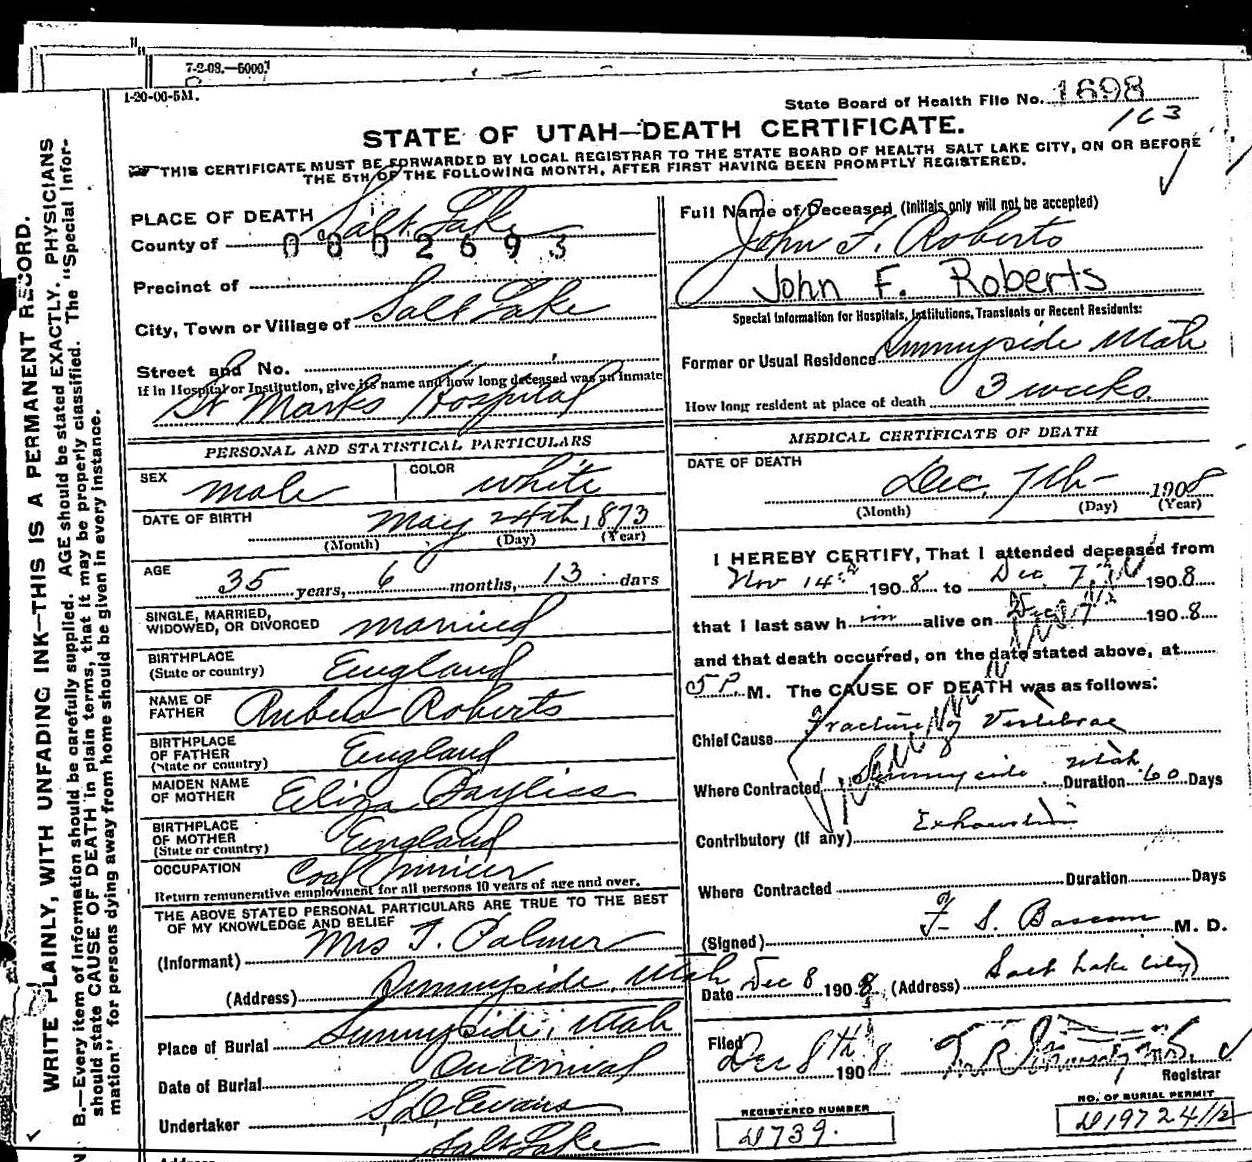 7-2-08.—5000.
1-20-06-5M.
State Board of Health File No. 1698
163
STATE OF UTAH—DEATH CERTIFICATE.
THIS CERTIFICATE MUST BE FORWARDED BY LOCAL REGISTRAR TO THE STATE BOARD OF HEALTH SALT LAKE CITY, ON OR BEFORE
THE 5TH OF THE FOLLOWING MONTH, AFTER FIRST HAVING BEEN PROMPTLY REGISTERED.
WRITE PLAINLY, WITH UNFADING INK—THIS IS A PERMANENT RECORD.
B.—Every item of information should be carefully supplied. AGE should be stated EXACTLY. PHYSICIANS
should state CAUSE OF DEATH in plain terms, that it may be properly classified. The "Special Infor-
mation" for persons dying away from home should be given in every instance.
PLACE OF DEATH
County of Salt Lake
0002693
Precinct of
City, Town or Village of Salt Lake
Street and No.
If in Hospital or Institution, give its name and how long deceased was an inmate
St Marks Hospital
PERSONAL AND STATISTICAL PARTICULARS
SEX male COLOR white
DATE OF BIRTH May 24th, 1873
(Month) (Day) (Year)
AGE 35 years, 6 months, 13 days
SINGLE, MARRIED,
WIDOWED, OR DIVORCED married
BIRTHPLACE
(State or country) England
NAME OF
FATHER Ruben Roberts
BIRTHPLACE
OF FATHER
(State or country) England
MAIDEN NAME
OF MOTHER Eliza Bayliss
BIRTHPLACE
OF MOTHER
(State or country) England
OCCUPATION Coal miner
Return remunerative employment for all persons 10 years of age and over.
THE ABOVE STATED PERSONAL PARTICULARS ARE TRUE TO THE BEST
OF MY KNOWLEDGE AND BELIEF
(Informant) Mrs T. Palmer
(Address) Sunnyside, Utah
Place of Burial Sunnyside, Utah
Date of Burial On Arrival
Undertaker S.D. Evans
Salt Lake
Address
Full Name of Deceased (Initials only will not be accepted)
John F. Roberts
John F. Roberts
Special Information for Hospitals, Institutions, Transients or Recent Residents:
Former or Usual Residence Sunnyside Utah
How long resident at place of death 3 weeks.
MEDICAL CERTIFICATE OF DEATH
DATE OF DEATH
Dec, 7th 1908
(Month) (Day) (Year)
I HEREBY CERTIFY, That I attended deceased from
Nov 14th 1908 to Dec 7th 1908
that I last saw him alive on Dec 7 1908
and that death occurred, on the date stated above, at
5 P. M. The CAUSE OF DEATH was as follows:
Chief Cause Fracture of Vertebrae
Where Contracted Sunnyside Utah Duration 60 Days
Contributory (if any) Exhaustion
Where Contracted Duration Days
(Signed) F. S. Bascom M. D.
Date Dec 8 1908 (Address) Salt Lake City
Filed
Dec 8th 1908
Registrar
REGISTERED NUMBER
D739.
NO. OF BURIAL PERMIT
D19724 1/2